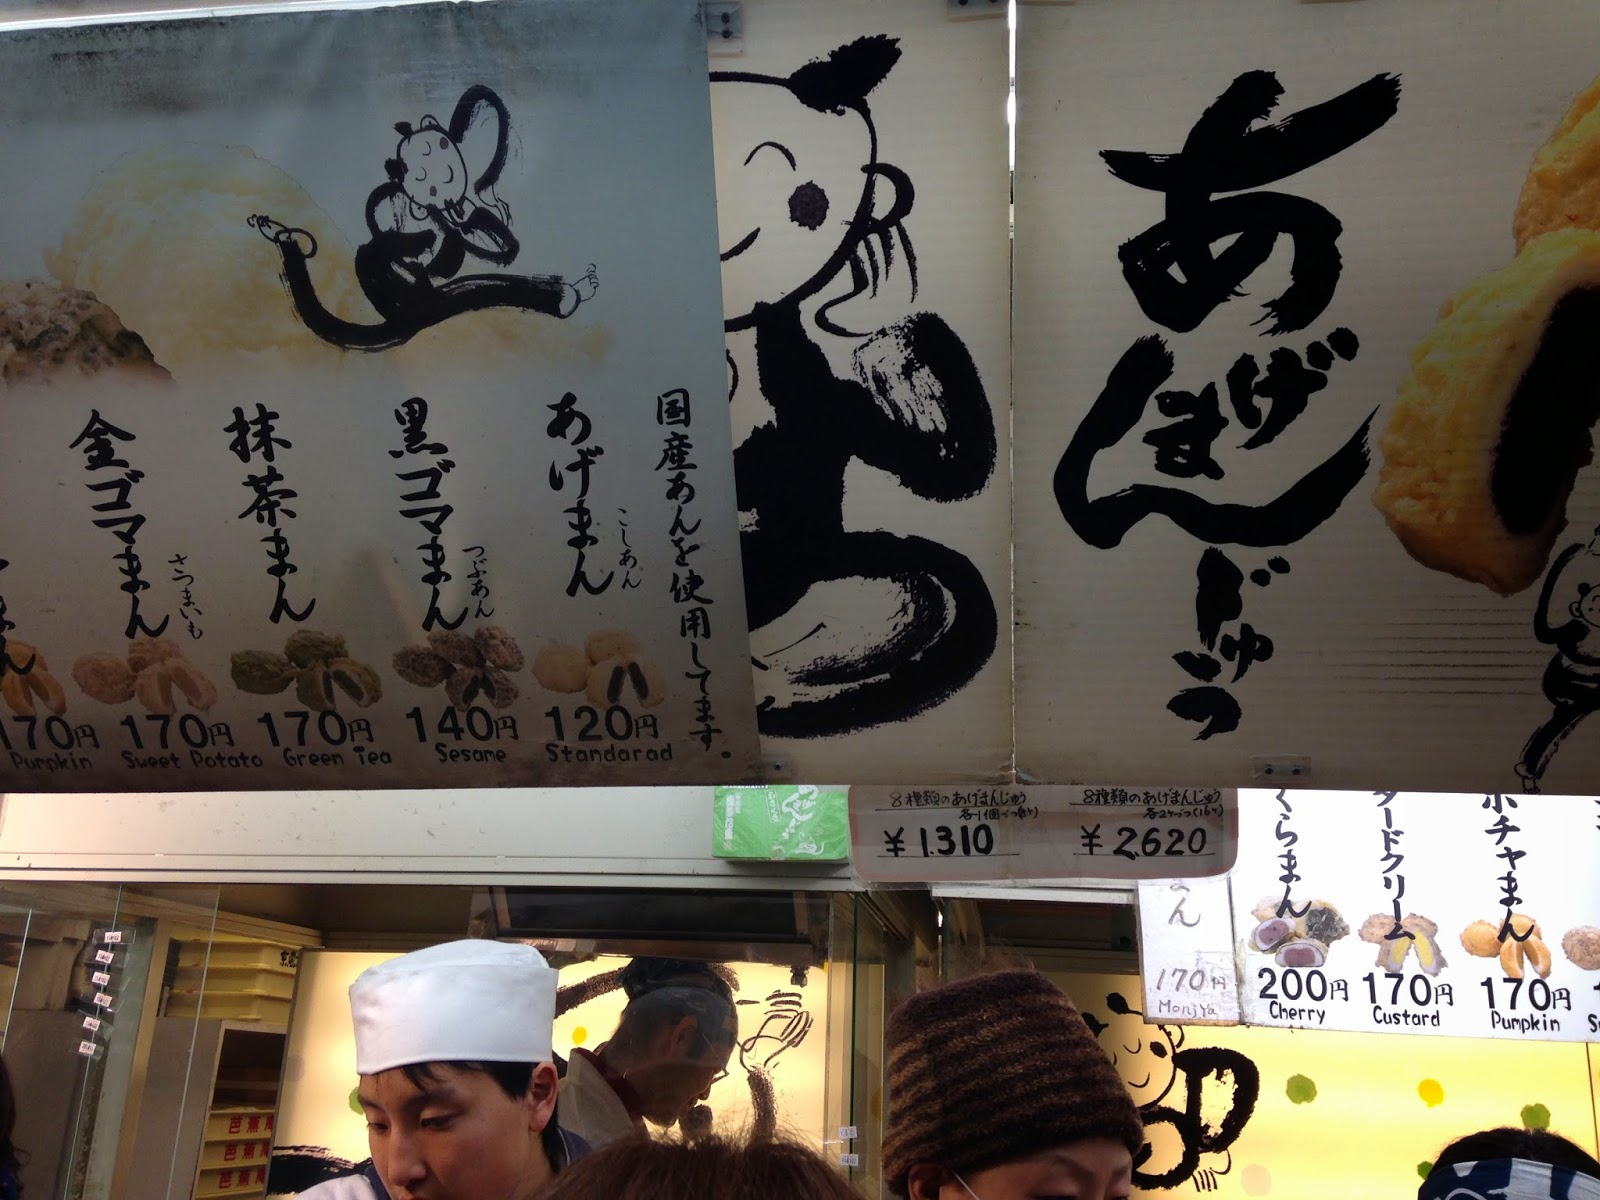 国産あんを使用してます。
あげまん
こしあん
120円
Standarad
黒ゴマまん
つぶあん
140円
Sesame
抹茶まん
170円
Green Tea
金ゴマまん
さつまいも
170円
Sweet Potato
まん
170円
Pumpkin
あげまんぢゅう
8種類のあげまんじゅう
¥1.310
8種類のあげまんじゅう
¥2620
まん
170円
Monjya
くらまん
200円
Cherry
タードクリーム
170円
Custard
ボチャまん
170円
Pumpkin
芭蕉
芭蕉
芭蕉